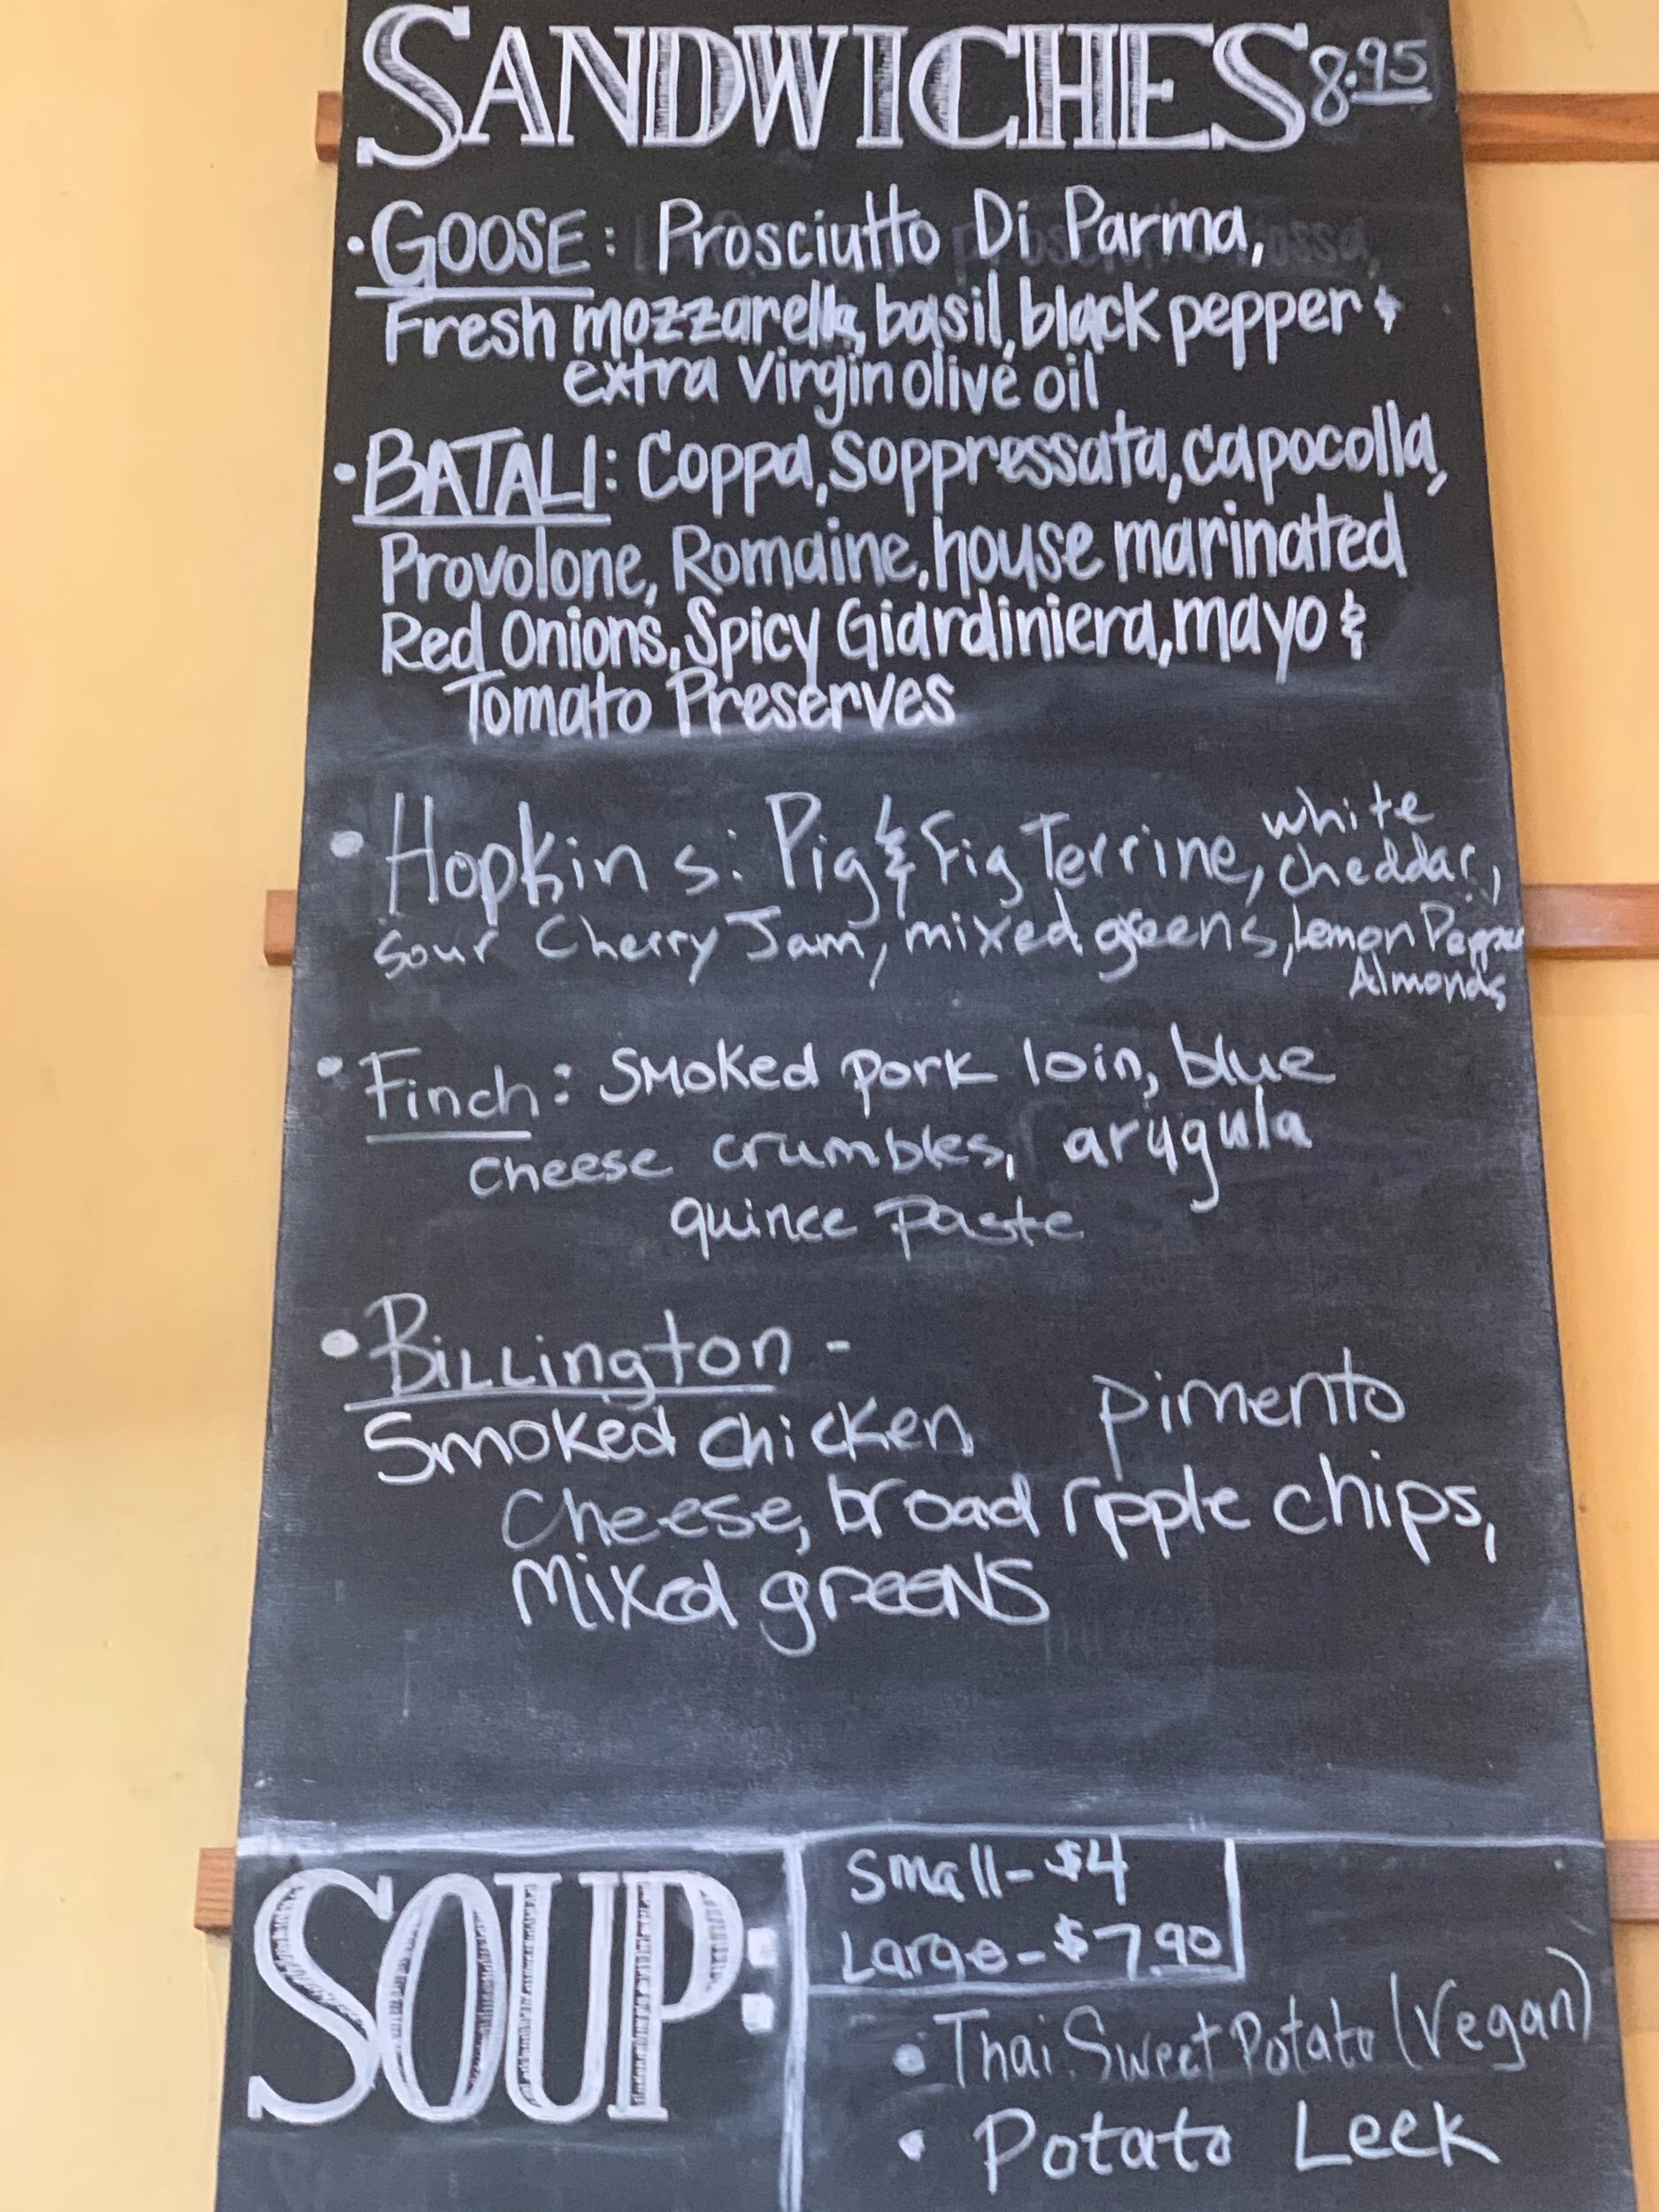 SANDWICHES 8.95
• GOOSE: Prosciutto Di Parma,
Fresh mozzarella, basil, black pepper &
extra virgin olive oil
• BATALI: Coppa, Soppressata, capocolla,
Provolone, Romaine, house marinated
Red Onions, Spicy Giardiniera, mayo &
Tomato Preserves
• Hopkins: Pig & Fig Terrine, white
cheddar,
sour Cherry Jam, mixed greens, Lemon Pepper
Almonds
• Finch: Smoked pork loin, blue
cheese crumbles, arugula
quince paste
• Billington -
Smoked chicken pimento
Cheese, broad ripple chips,
Mixed greens
SOUP:
Small - $4
Large - $7.90
• Thai Sweet Potato (Vegan)
• Potato Leek